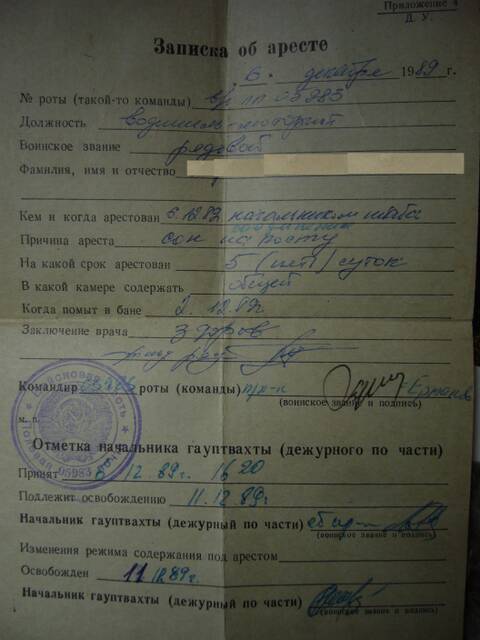 Приложение 4
Д. У.
Записка об аресте
6. декабре 1989 г.
№ роты (такой-то команды) в/ч пп 05983
Должность водитель-
Воинское звание рядовой
Фамилия, имя и отчество
Кем и когда арестован 6.12.89 начальником штаба
соединения
Причина ареста сон на посту
На какой срок арестован 5 (пять) суток
В какой камере содержать общей
Когда помыт в бане 2.12.89г.
Заключение врача здоров
Командир роты (команды) Ермаков
(воинское звание и подпись)
м. п.
05983
Отметка начальника гауптвахты (дежурного по части)
Принят 6 12.89г. 16 20
Подлежит освобождению 11.12.89г
Начальник гауптвахты (дежурный по части)
(воинское звание и подпись)
Изменения режима содержания под арестом
Освобожден 11 12.89г.
Начальник гауптвахты (дежурный по части)
(воинское звание и подпись)